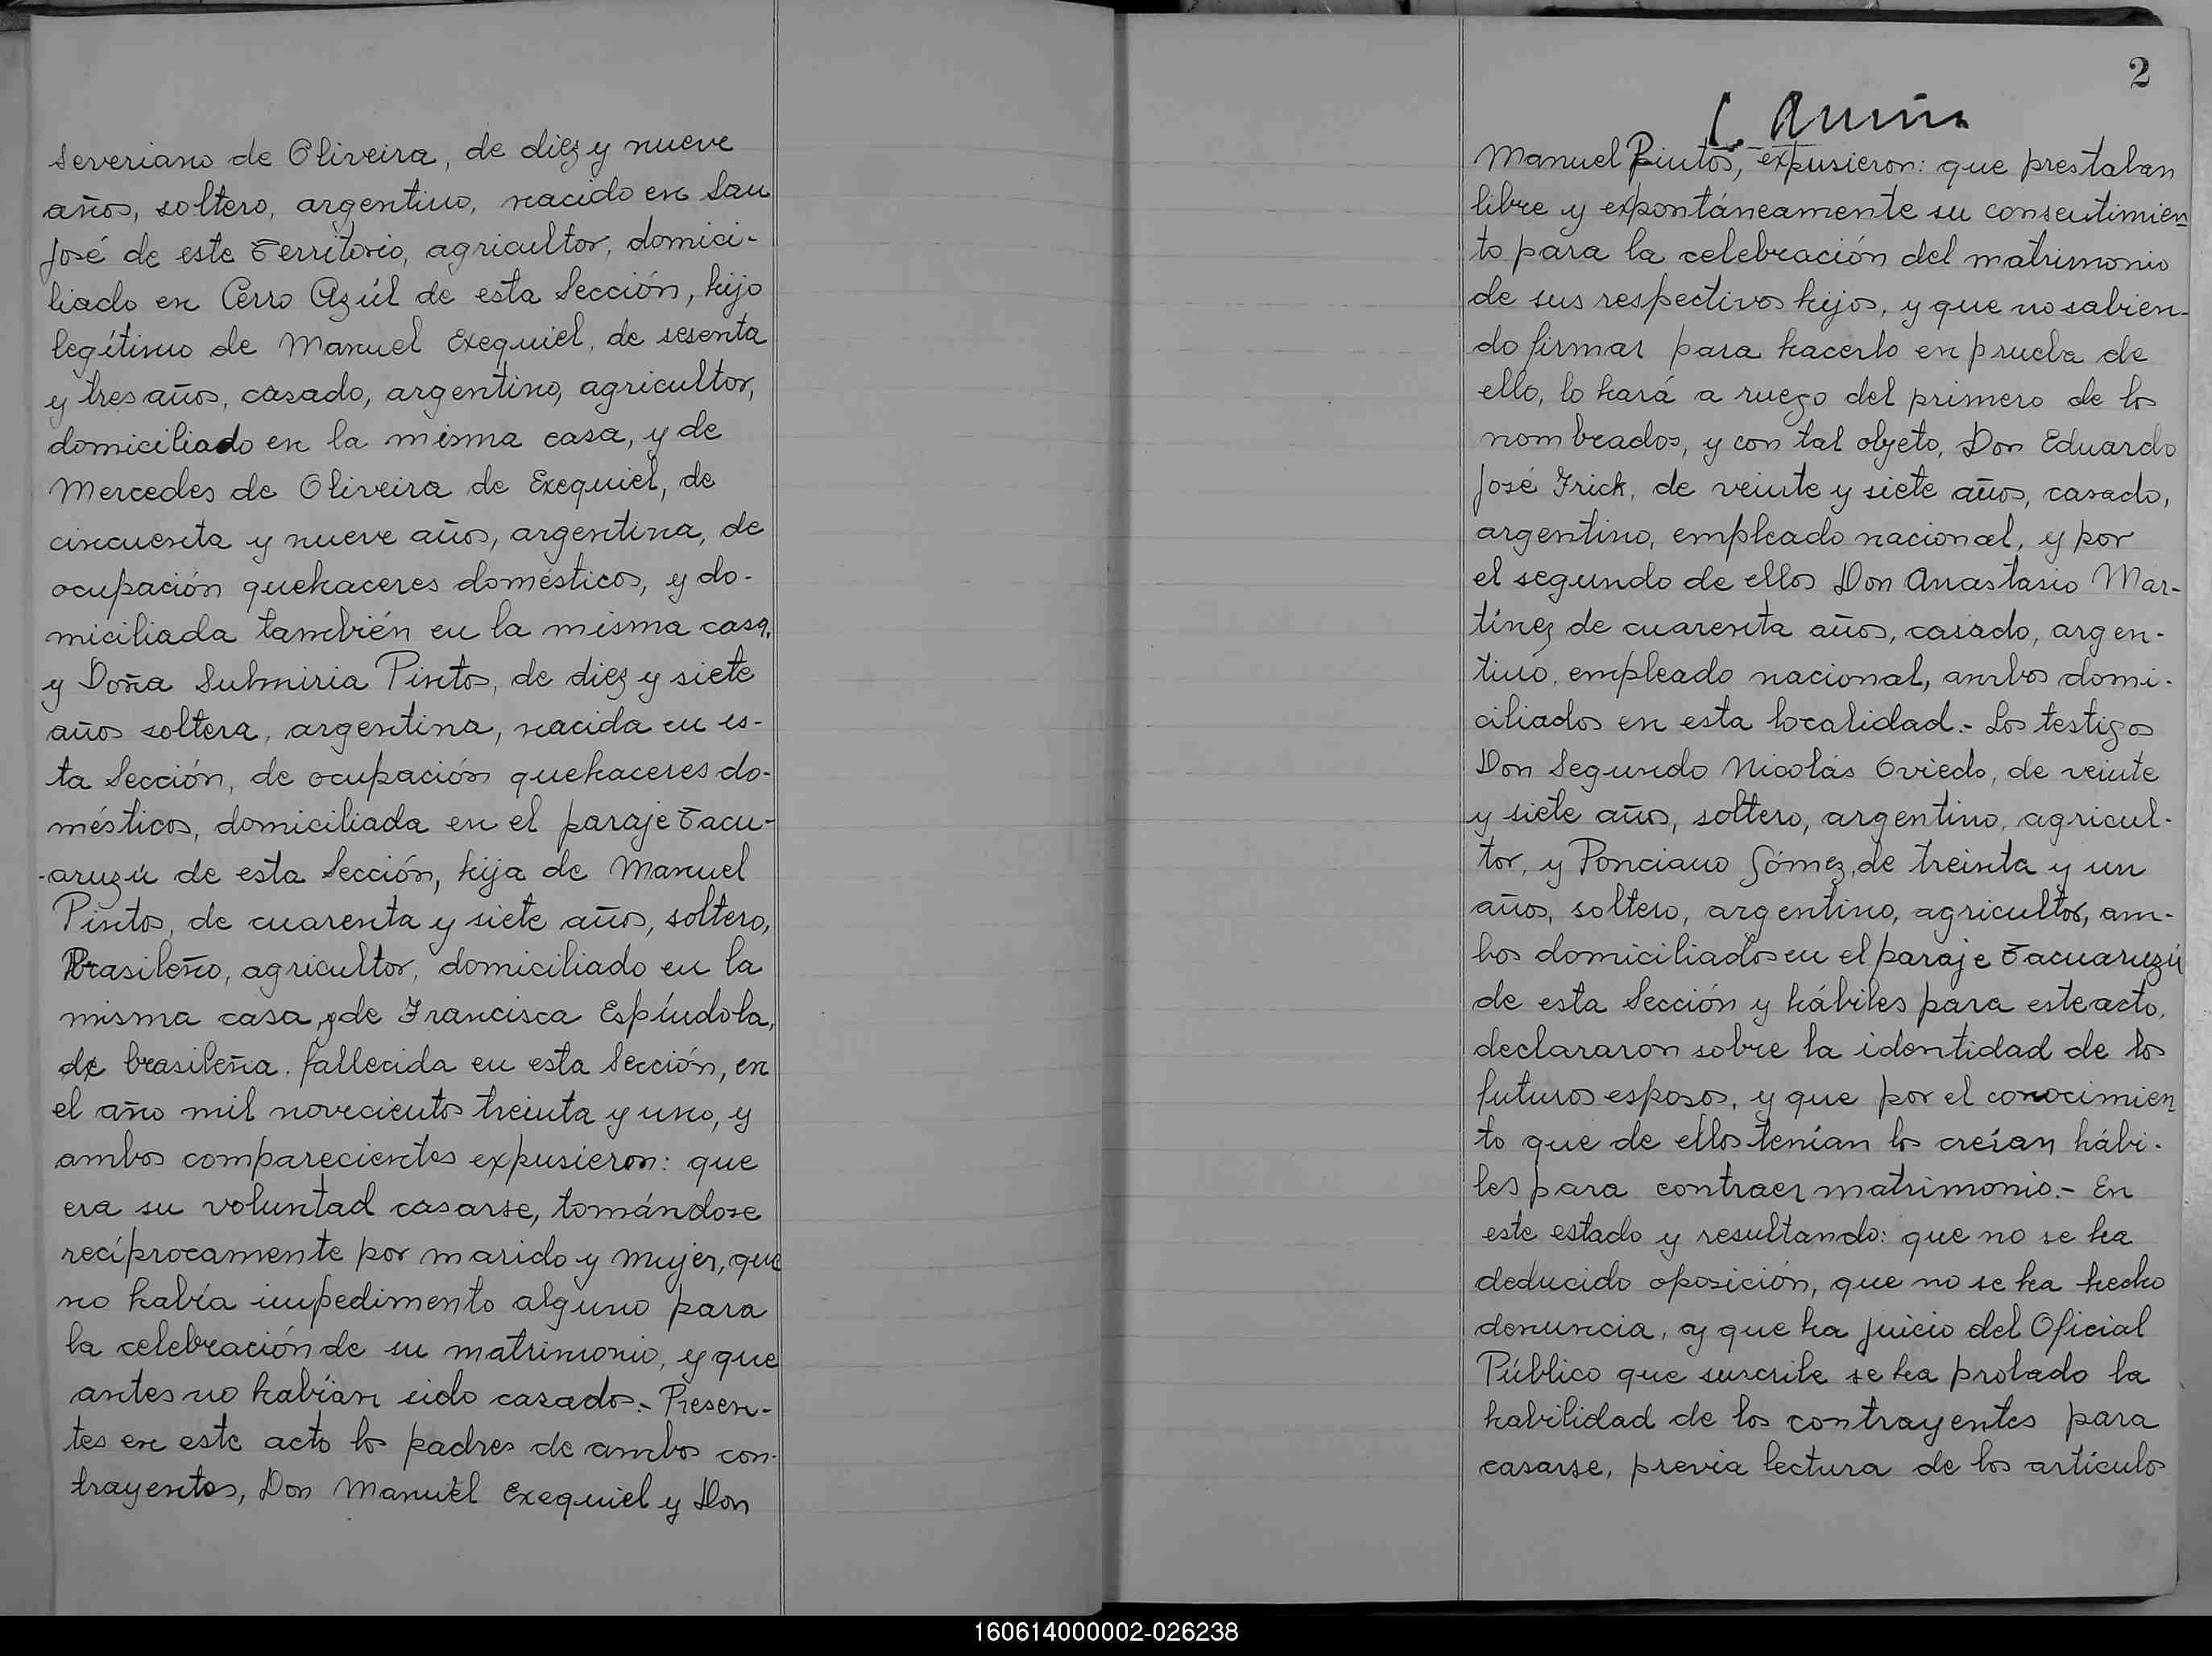 Severiano de Oliveira, de diez y nueve
años, soltero, argentino, nacido en San
José de este Territorio, agricultor, domici-
liado en Cerro Azúl de esta Sección, hijo
legítimo de Manuel Exequiel, de sesenta
y tres años, casado, argentino, agricultor,
domiciliado en la misma casa, y de
Mercedes de Oliveira de Exequiel, de
cincuenta y nueve años, argentina, de
ocupación quehaceres domésticos, y do-
miciliada también en la misma casa,
y Doña Sulmiria Pintos, de diez y siete
años soltera, argentina, nacida en es-
ta Sección, de ocupación quehaceres do-
mésticos, domiciliada en el paraje Tacu-
-aruzú de esta Sección, hija de Manuel
Pintos, de cuarenta y siete años, soltero,
Brasileño, agricultor, domiciliado en la
misma casa, y de Francisca Espíndola,
de brasileña. fallecida en esta Sección, en
el año mil novecientos treinta y uno, y
ambos comparecientes expusieron: que
era su voluntad casarse, tomándose
recíprocamente por marido y mujer, que
no había impedimento alguno para
la celebración de su matrimonio, y que
antes no habían sido casados.- Presen-
tes en este acto los padres de ambos con-
trayentes, Don Manuel Exequiel y Don
2
Manuel Pintos, expusieron: que prestaban
libre y expontáneamente su consentimien
to para la celebración del matrimonio
de sus respectivos hijos, y que no sabien-
do firmar para hacerlo en prueba de
ello, lo hará a ruego del primero de los
nombrados, y con tal objeto, Don Eduardo
José Frick, de veinte y siete años, casado,
argentino, empleado nacional, y por
el segundo de ellos Don Anastasio Mar-
tínez de cuarenta años, casado, argen-
tino, empleado nacional, ambos domi-
ciliados en esta localidad.- Los testigos
Don Segundo Nicolás Oviedo, de veinte
y siete años, soltero, argentino, agricul-
tor, y Ponciano Gómez, de treinta y un
años, soltero, argentino, agricultor, am-
bos domiciliados en el paraje Tacuaruzú
de esta Sección y hábiles para este acto,
declararon sobre la identidad de los
futuros esposos, y que por el conocimien
to que de ellos tenían los creían hábi-
les para contraer matrimonio.- En
este estado y resultando: que no se ha
deducido oposición, que no se ha hecho
denuncia, y que ha juicio del Oficial
Público que suscribe se ha probado la
habilidad de los contrayentes para
casarse, previa lectura de los artículos
160614000002-026238